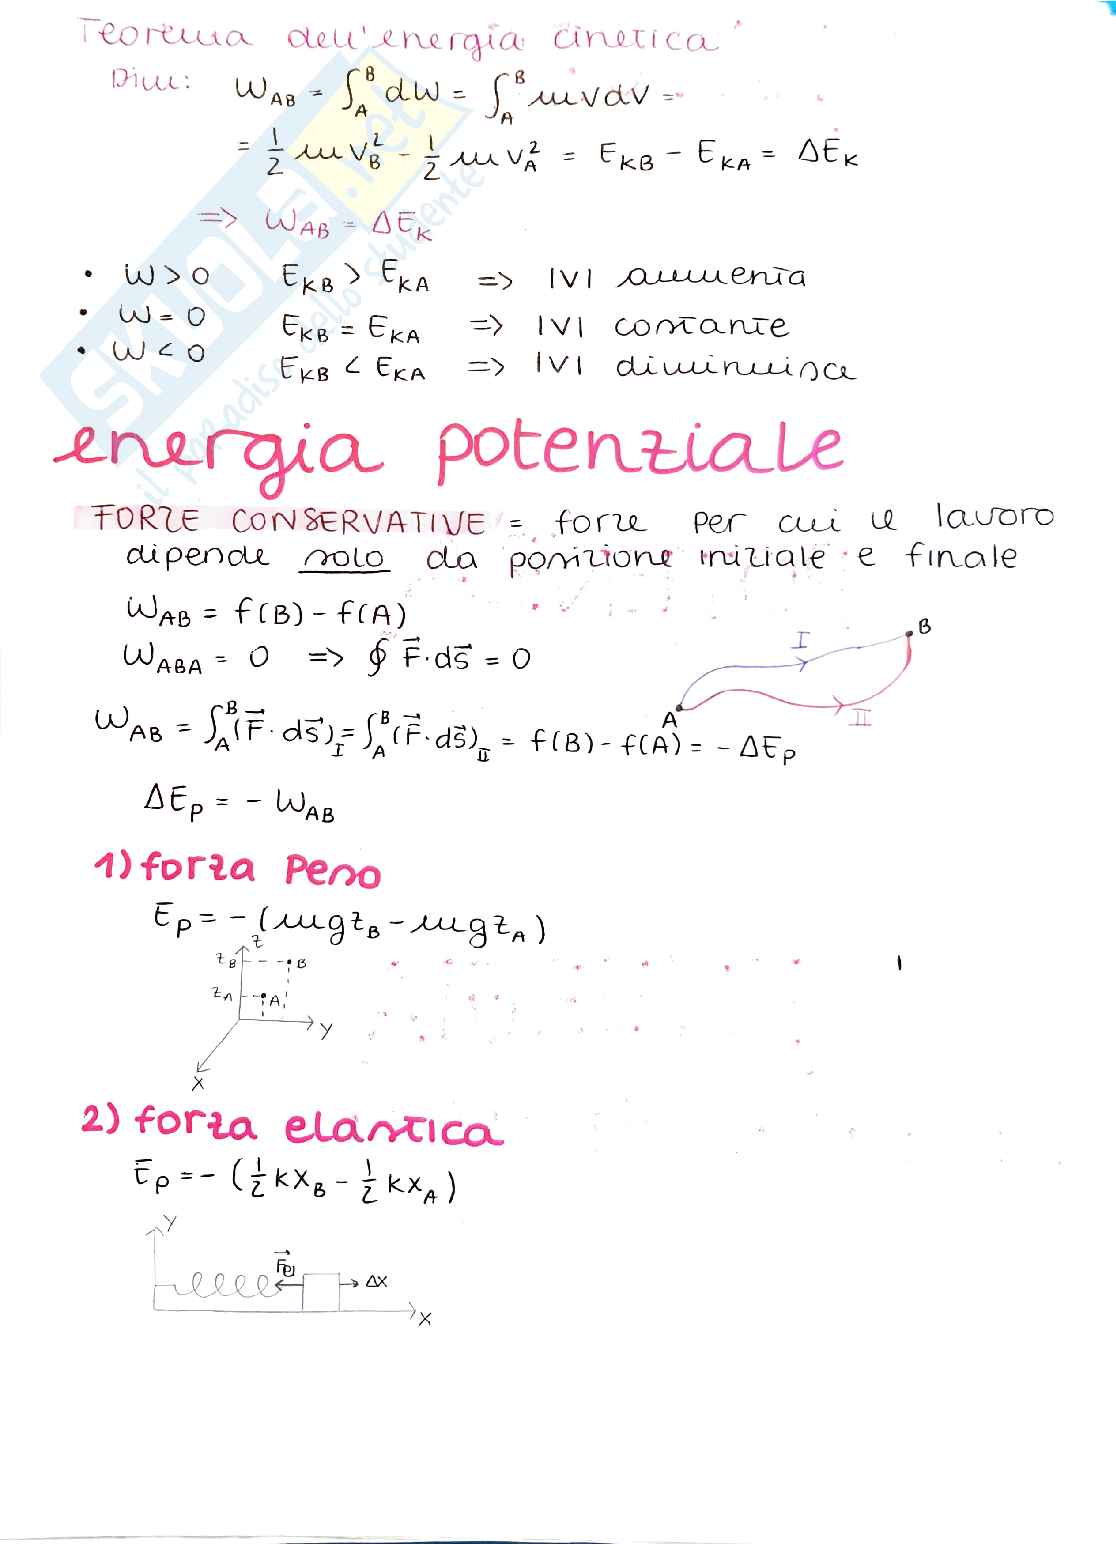 Teorema dell'energia cinetica
Dim: W_AB = ∫_A^B dW = ∫_A^B mvdv =
= 1/2 m v_B^2 - 1/2 m v_A^2 = E_KB - E_KA = ΔE_K
=> W_AB = ΔE_K
• W > 0 E_KB > E_KA => |V| aumenta
• W = 0 E_KB = E_KA => |V| costante
• W < 0 E_KB < E_KA => |V| diminuisce
SKUOLA.net
il paradiso dello studente
energia potenziale
FORZE CONSERVATIVE = forze per cui il lavoro
dipende solo da posizione iniziale e finale
W_AB = f(B) - f(A)
W_ABA = 0 => ∮ F⃗·ds⃗ = 0
I B
A II
W_AB = ∫_A^B (F⃗·ds⃗)_I = ∫_A^B (F⃗·ds⃗)_II = f(B) - f(A) = - ΔE_P
ΔE_P = - W_AB
1) forza peso
E_P = - (mgz_B - mgz_A)
z
z_B B
z_A A
y
x
2) forza elastica
E_P = - (1/2 kx_B - 1/2 kx_A)
y
F⃗_el Δx
x